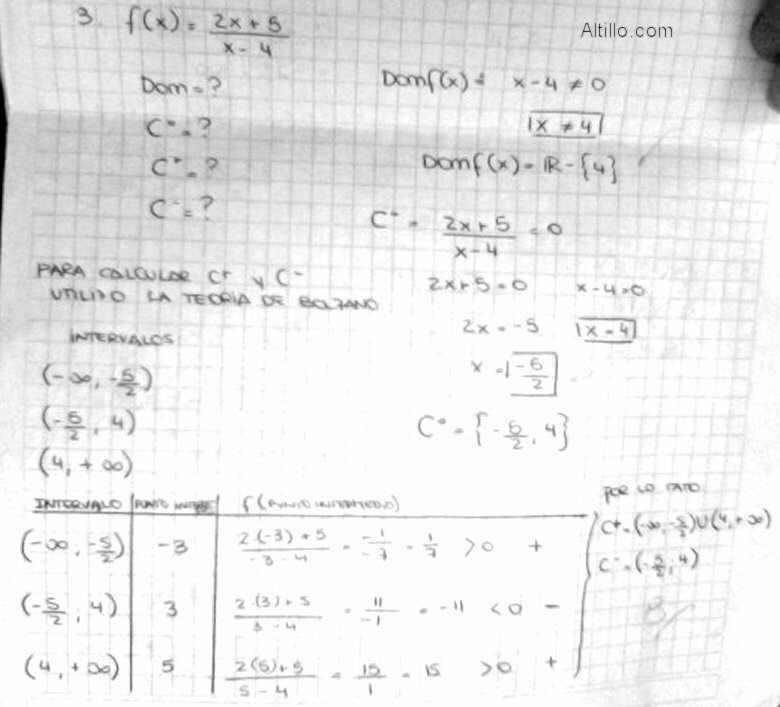 3. f(x) = (2x+5)/(x-4)
Altillo.com
Dom = ?
C° = ?
C⁺ = ?
C⁻ = ?
Dom f(x) = x-4 ≠ 0
x ≠ 4
Dom f(x) = ℝ - {4}
C° = (2x+5)/(x-4) = 0
2x+5=0 x-4=0
2x = -5 x=4
x = -5/2
C° = {-5/2, 4}
PARA CALCULAR C⁺ y C⁻
UTILIZO LA TEORIA DE BOLZANO
INTERVALOS
(-∞, -5/2)
(-5/2, 4)
(4, +∞)
INTERVALO PUNTO f(PUNTO INTERMEDIO)
(-∞, -5/2) -3 (2.(-3)+5)/(-3-4) = -1/-7 = 1/7 >0 +
(-5/2, 4) 3 (2.(3)+5)/(3-4) = 11/-1 = -11 <0 -
(4, +∞) 5 (2(5)+5)/(5-4) = 15/1 = 15 >0 +
POR LO TATO
C⁺ = (-∞, -5/2) U (4, +∞)
C⁻ = (-5/2, 4)